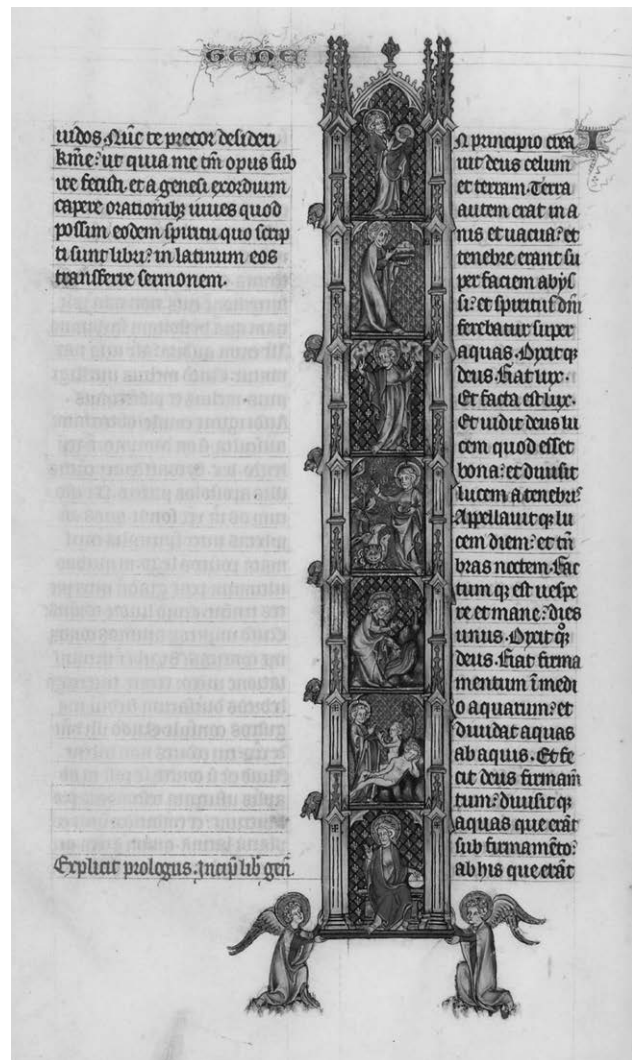 GENE
uidos. Nūc te precor desideri
kīñe: ut quia me tm̄ opus sub
ire fecisti. et a genesi exordium
capere orationibȝ iuues quod
possim eodem spiritu quo scrip
ti sunt libri: in latinum eos
transferre sermonem.
Explicit prologus. Incip̄ lib̄ geñ.
In principio crea
uit deus celum
et terram. Terra
autem erat ina
nis et uacua: et
tenebre erant su
per faciem abys
si: et spiritus dn̄i
ferebatur super
aquas. Dixit qȝ
deus. Fiat lux.
Et facta est lux.
Et uidit deus lu
cem quod esset
bona: et diuisit
lucem a tenebris
Appellauit qȝ lu
cem diem: et tn̄
bras noctem. Fac
tum qȝ est uespe
re et mane: dies
unus. Dixit qȝ
deus. Fiat firma
mentum ī medi
o aquarum: et
diuidat aquas
ab aquis. Et fe
cit deus firmam̄
tum: diuisit qȝ
aquas que erāt
sub firmamēto:
ab his que erāt